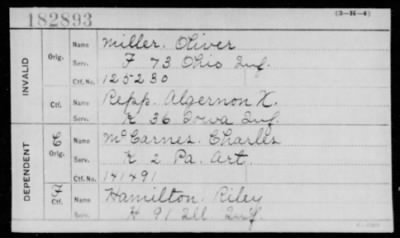 182893
(3-H-4)
INVALID
Orig.
Name Miller, Oliver
Serv. F 73 Ohio Inf.
Ctf. No. 125230
Ctf.
Name Repp, Algernon K.
Serv. K 36 Iowa Inf.
DEPENDENT
C
Orig.
Name McCarnes, Charles
Serv. K 2 Pa. Art.
Ctf. No. 141491
F
Ctf.
Name Hamilton, Riley
Serv. H 91 Ill Inf.